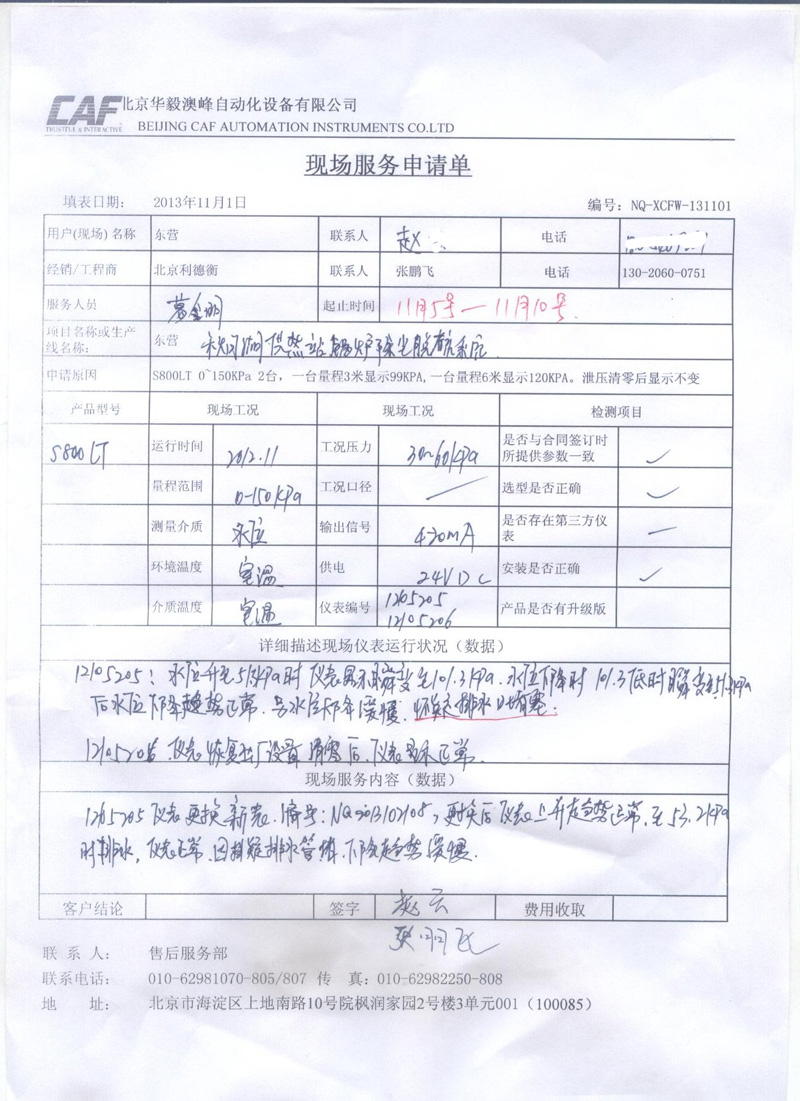 CAF 北京华毅澳峰自动化设备有限公司
TRUSTFUL & INTERACTIVE BEIJING CAF AUTOMATION INSTRUMENTS CO.LTD
现场服务申请单
填表日期: 2013年11月1日 编号: NQ-XCFW-131101
用户(现场)名称 东营 联系人 赵 电话
经销/工程商 北京利德衡 联系人 张鹏飞 电话 130-2060-0751
服务人员 起止时间 11月5号—11月10号.
项目名称或生产线名称: 东营 供热站锅炉除尘脱
申请原因 S800LT 0~150KPa 2台，一台量程3米显示99KPA,一台量程6米显示120KPA。泄压清零后显示不变
产品型号 现场工况 现场工况 检测项目
S800LT 运行时间 2012.11 工况压力 30~60kPa 是否与合同签订时所提供参数一致 ✓
量程范围 0-150kPa 工况口径 选型是否正确 ✓
测量介质 水位 输出信号 4-20mA 是否存在第三方仪表 —
环境温度 室温 供电 24VDC 安装是否正确 ✓
介质温度 室温 仪表编号 12105205 12105206 产品是否有升级版
详细描述现场仪表运行状况（数据）
12105205: 水位升至51.3kPa时仪表显示瞬变至101.3kPa. 水位下降时 101.3 时瞬变
后水位下降趋势正常. 水位下降缓慢. 怀疑排水口堵塞.
12105206 仪表恢复出厂设置清零后, 仪表显示正常.
现场服务内容（数据）
12105205仪表更换新表. 编号: NQ2013102108, 更换后仪表上升趋势正常. 至53.2kPa
时排水, 仪表正常. 因 排水管堵, 下降趋势缓慢.
客户结论 签字 赵云 费用收取
张鹏飞
联 系 人: 售后服务部
联系电话: 010-62981070-805/807 传 真: 010-62982250-808
地 址: 北京市海淀区上地南路10号院枫润家园2号楼3单元001（100085）